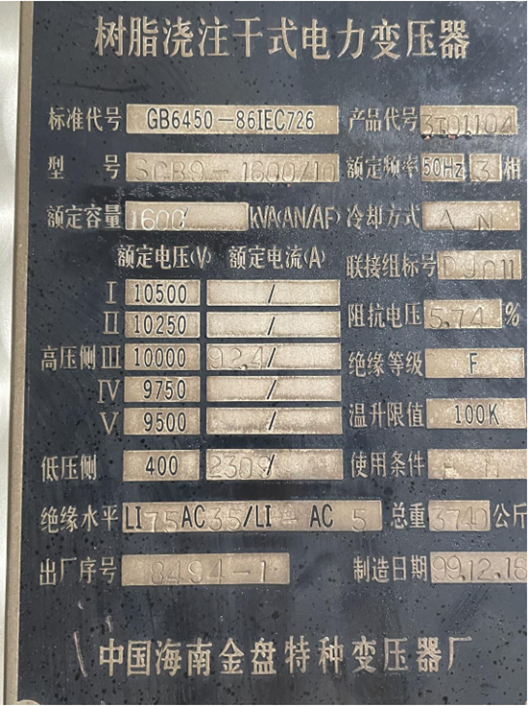 树脂浇注干式电力变压器
标准代号 GB6450-86IEC726 产品代号 3T01104
型 号 SCB9-1600/10 额定频率 50Hz 3 相
额定容量 1600/ KVA(AN/AF) 冷却方式 A N
额定电压(V) 额定电流(A) 联接组标号 DJn11
I 10500 /
II 10250 / 阻抗电压 5.74 %
高压侧 III 10000 92.4/ 绝缘等级 F
IV 9750 /
V 9500 / 温升限值 100K
低压侧 400 2309/ 使用条件
绝缘水平 LI 75 AC 35/LI - AC 5 总重 3740 公斤
出厂序号 8494-1 制造日期 99.12.18
中国海南金盘特种变压器厂